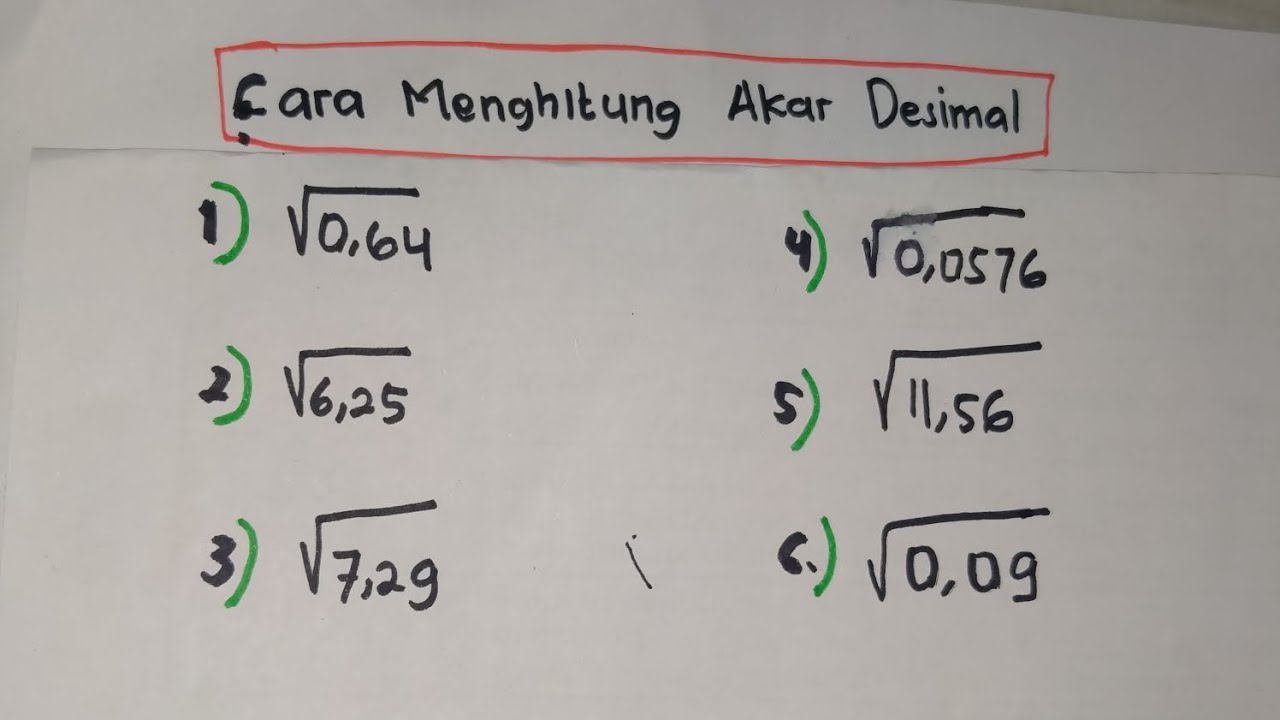 Cara Menghitung Akar Desimal
1) √0,64
2) √6,25
3) √7,29
4) √0,0576
5) √11,56
6.) √0,09